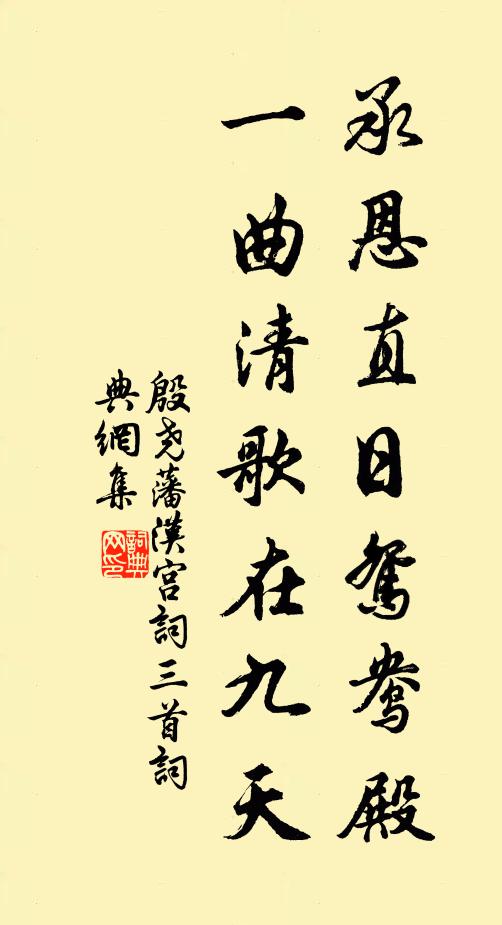 承恩直日鸳鸯殿
一曲清歌在九天
殷尧藩漢宫詞三首詞
典網集
詞典
网印